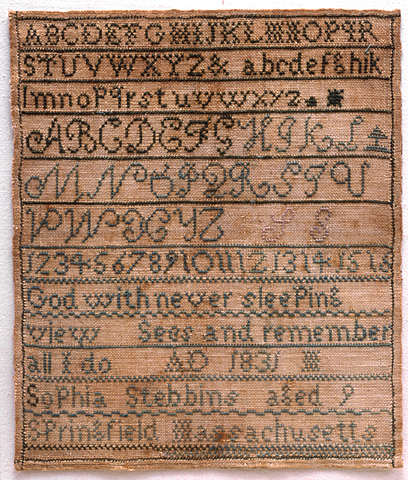 ABCDEFGHIJKLMNOPQR
STUVWXYZ& abcdefghik
lmnopqrstuvwxyz
ABCDEFGHIKL
MNOPQRSTU
VWXYZ
12345678910111213141516
God with never sleeping
view Sees and remember
all I do AD 1831
Sophia Stebbins aged 9
Springfield Massachusetts